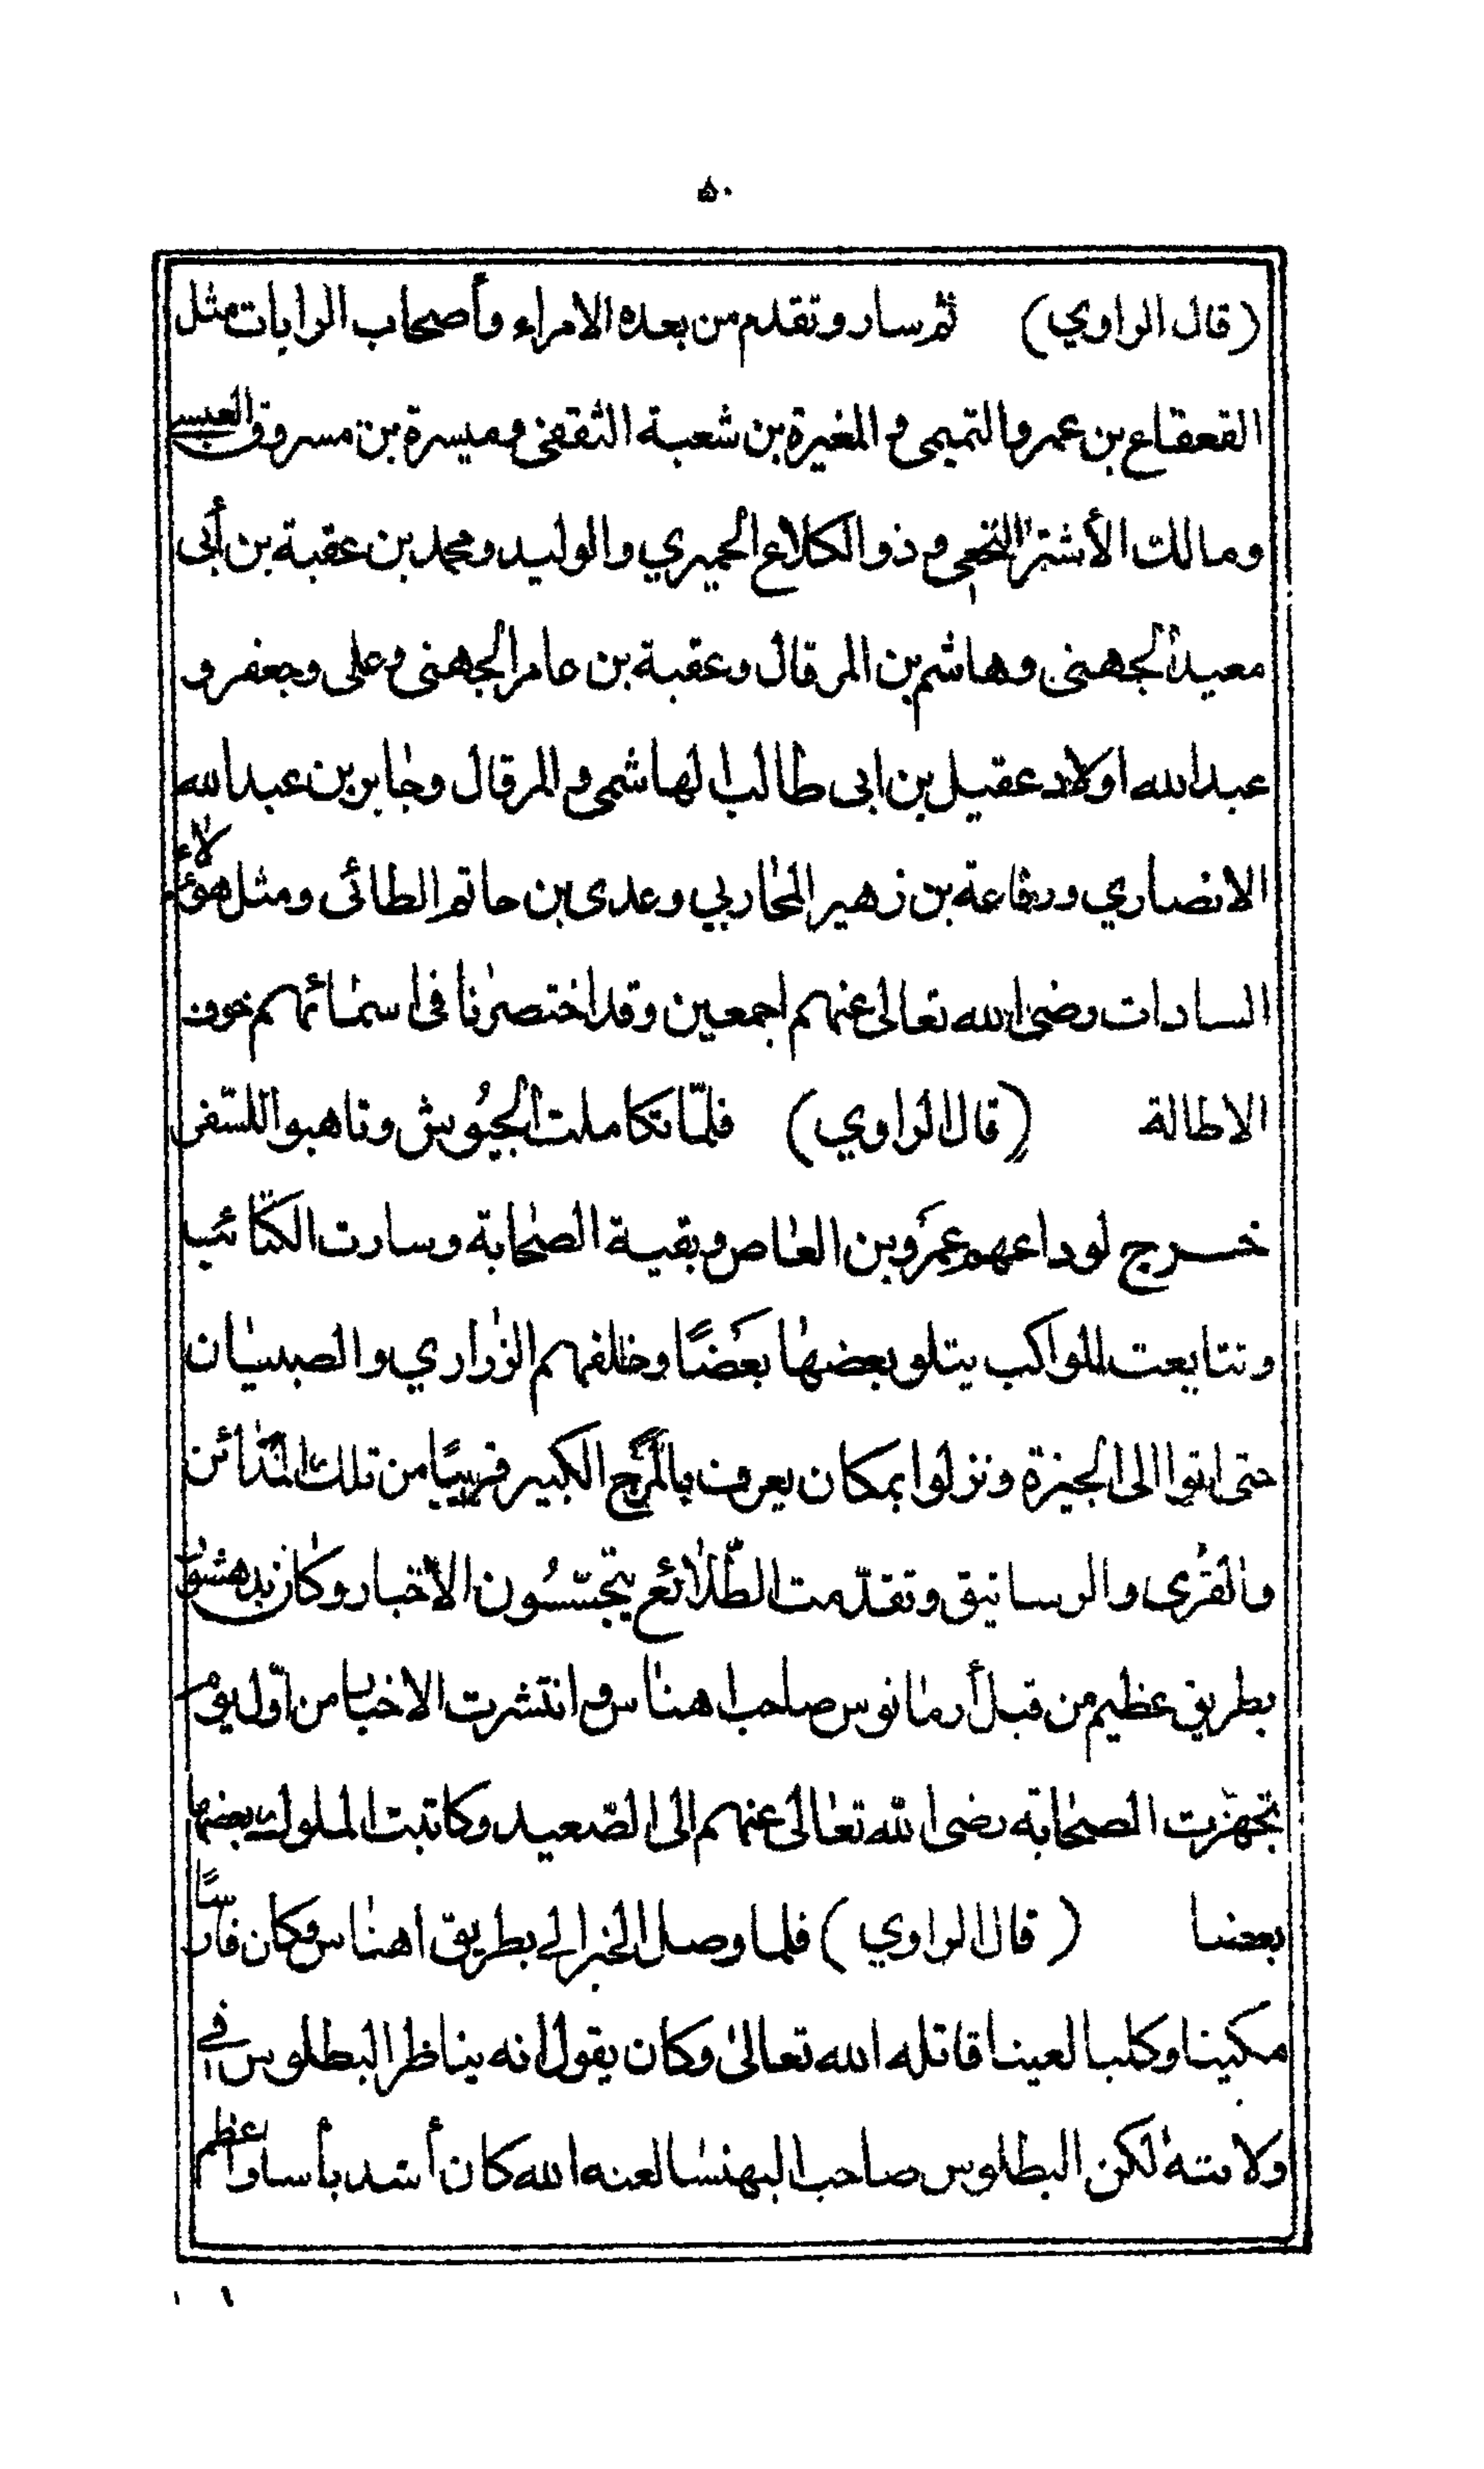 ٥٠
(قال الراوي) ثم سار وتقدم من بعده الامراء وأصحاب الرايات مثل
القعقاع بن عمرو التميمى والمغيرة بن شعبة الثقفى وميسرة بن مسروق العبسى
ومالك الأشتر النخعى وذو الكلاع الحميري والوليد ومحمد بن عقبة بن أبى
معيد الجهنى وهاشم بن المرقال وعقبة بن عامر الجهنى وعلى وجعفر و
عبد الله اولاد عقيل بن ابى طالب الهاشمى والمرقال وجابر بن عبد الله
الانصاري ورفاعة بن زهير المحاربي وعدى بن حاتم الطائى ومثل هؤلاء
السادات رضى الله تعالى عنهم اجمعين وقد اختصرنا فى اسمائهم خوف
الاطالة (قال الراوي) فلمّا تكاملت الجيُوش وتاهبوا للسّفر
خرج لوداعهم عمَرو بن العاص وبقية الصحابة وسارت الكتائب
وتتابعت المواكب يتلو بعضها بعَضًا وخلفهم الزراري والصبيان
حتى اتوا الى الجيزة ونزلوا بمكان يعرف بالمَرج الكبير قريبًا من تلك المدائن
والقُرى والرساتيق وتقدّمت الطّلائع يتجسّسُون الأخبار وكان بدهشور
بطريق عظيم من قبل أرمانوس صاحب اهناس وانتشرت الاخبار من اوّل يوم
تجهزّت الصحابة رضى الله تعالى عنهم الى الصّعيد وكاتبت الملوك بعضها
بعضا (قال الراوي) فلما وصل الخبر الى بطريق اهناس وكان فارسًا
مكينا وكلبا لعينا قاتله الله تعالىٰ وكان يقول انه يناظر البطلوس في
ولايته لكن البطلوس صاحب البهنسا لعنه الله كان أشد بأسا واعظم